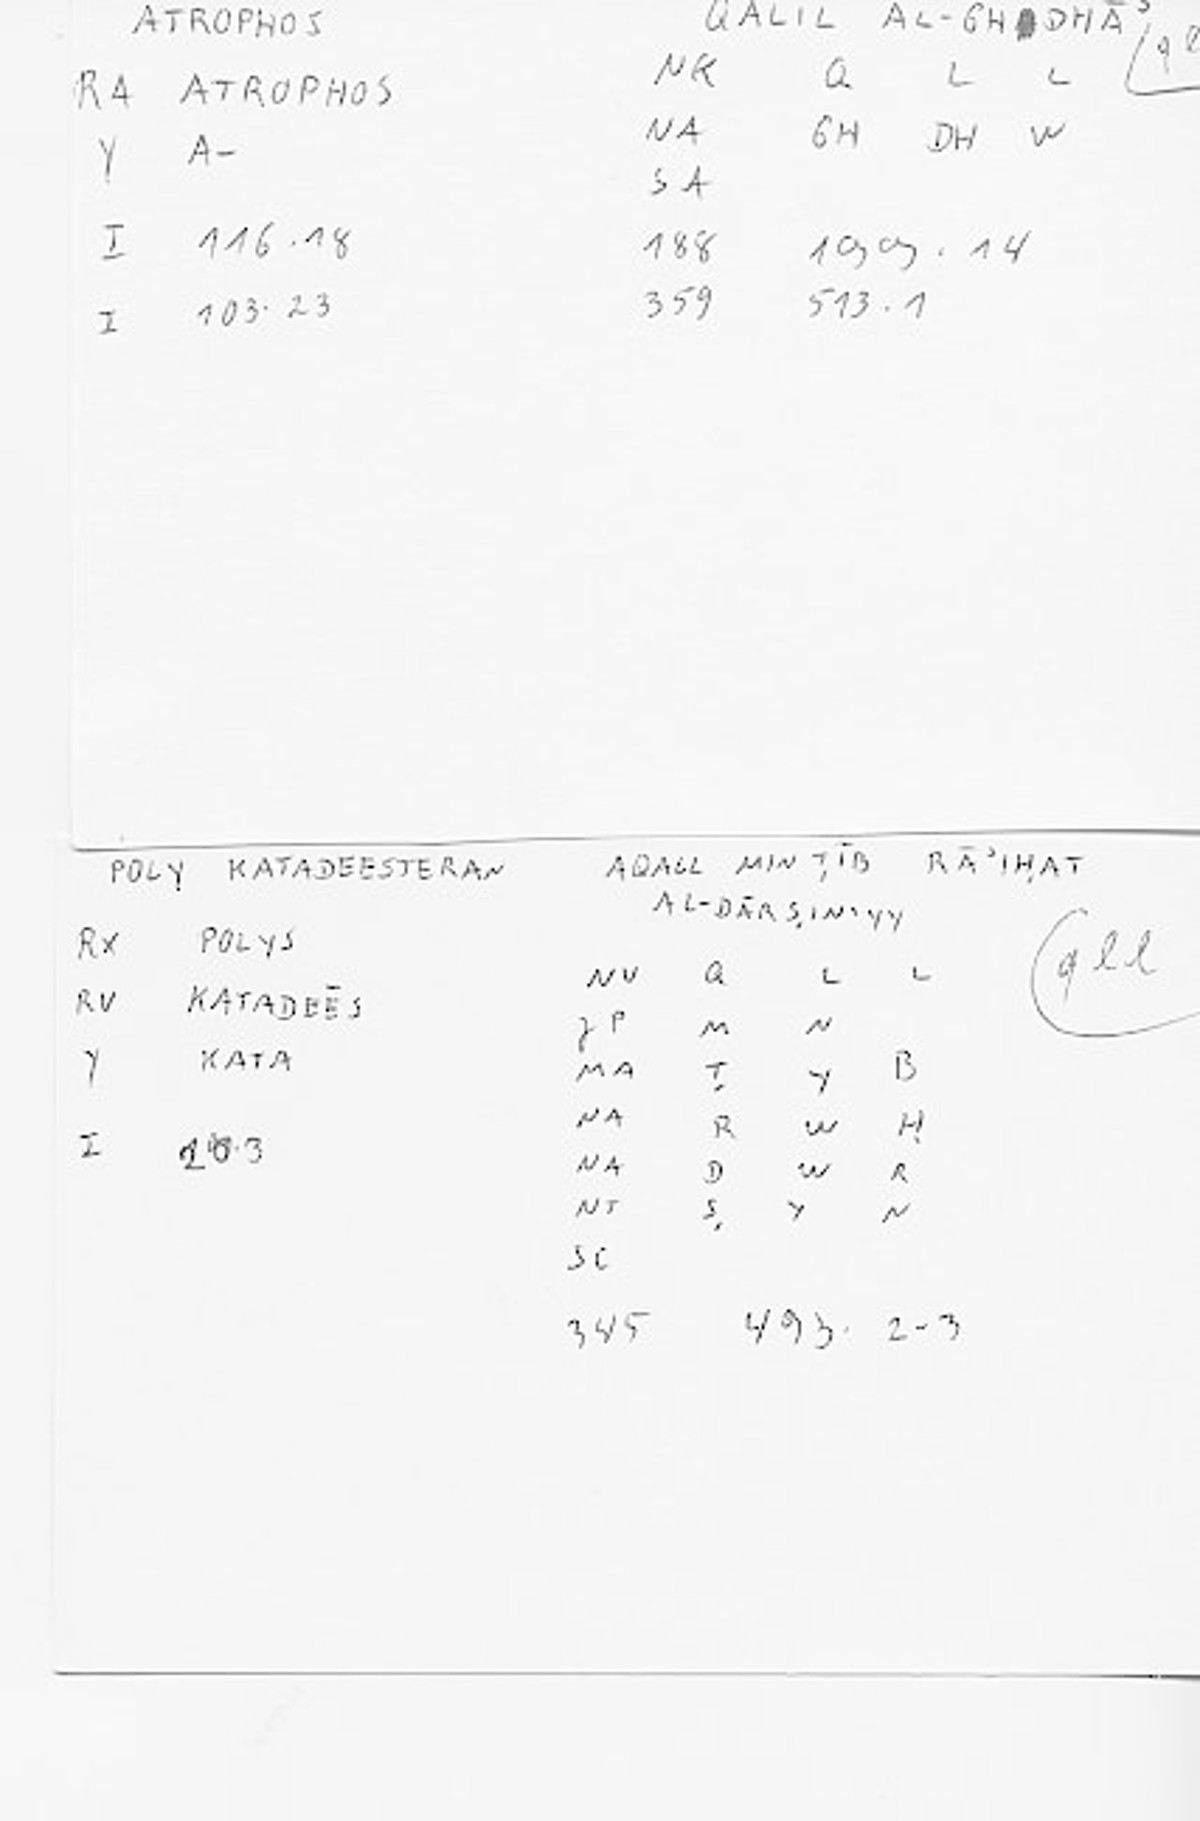 ATROPHOS QALIL AL-GHDHĀʾ
RA ATROPHOS NK Q L L
Y A- NA GH DH W
SA
I 116.18 188 199.14
I 103.23 359 513.1
POLY KATADEESTERAN AQALL MIN ṬĪB RĀʾIḤAT
AL-DĀRṢINIYY
RX POLYS NV Q L L qll
RV KATADEĒS P M N
Y KATA MA Ṭ Y B
NA R W Ḥ
I NA D W R
NT Ṣ Y N
SC
345 493. 2-3